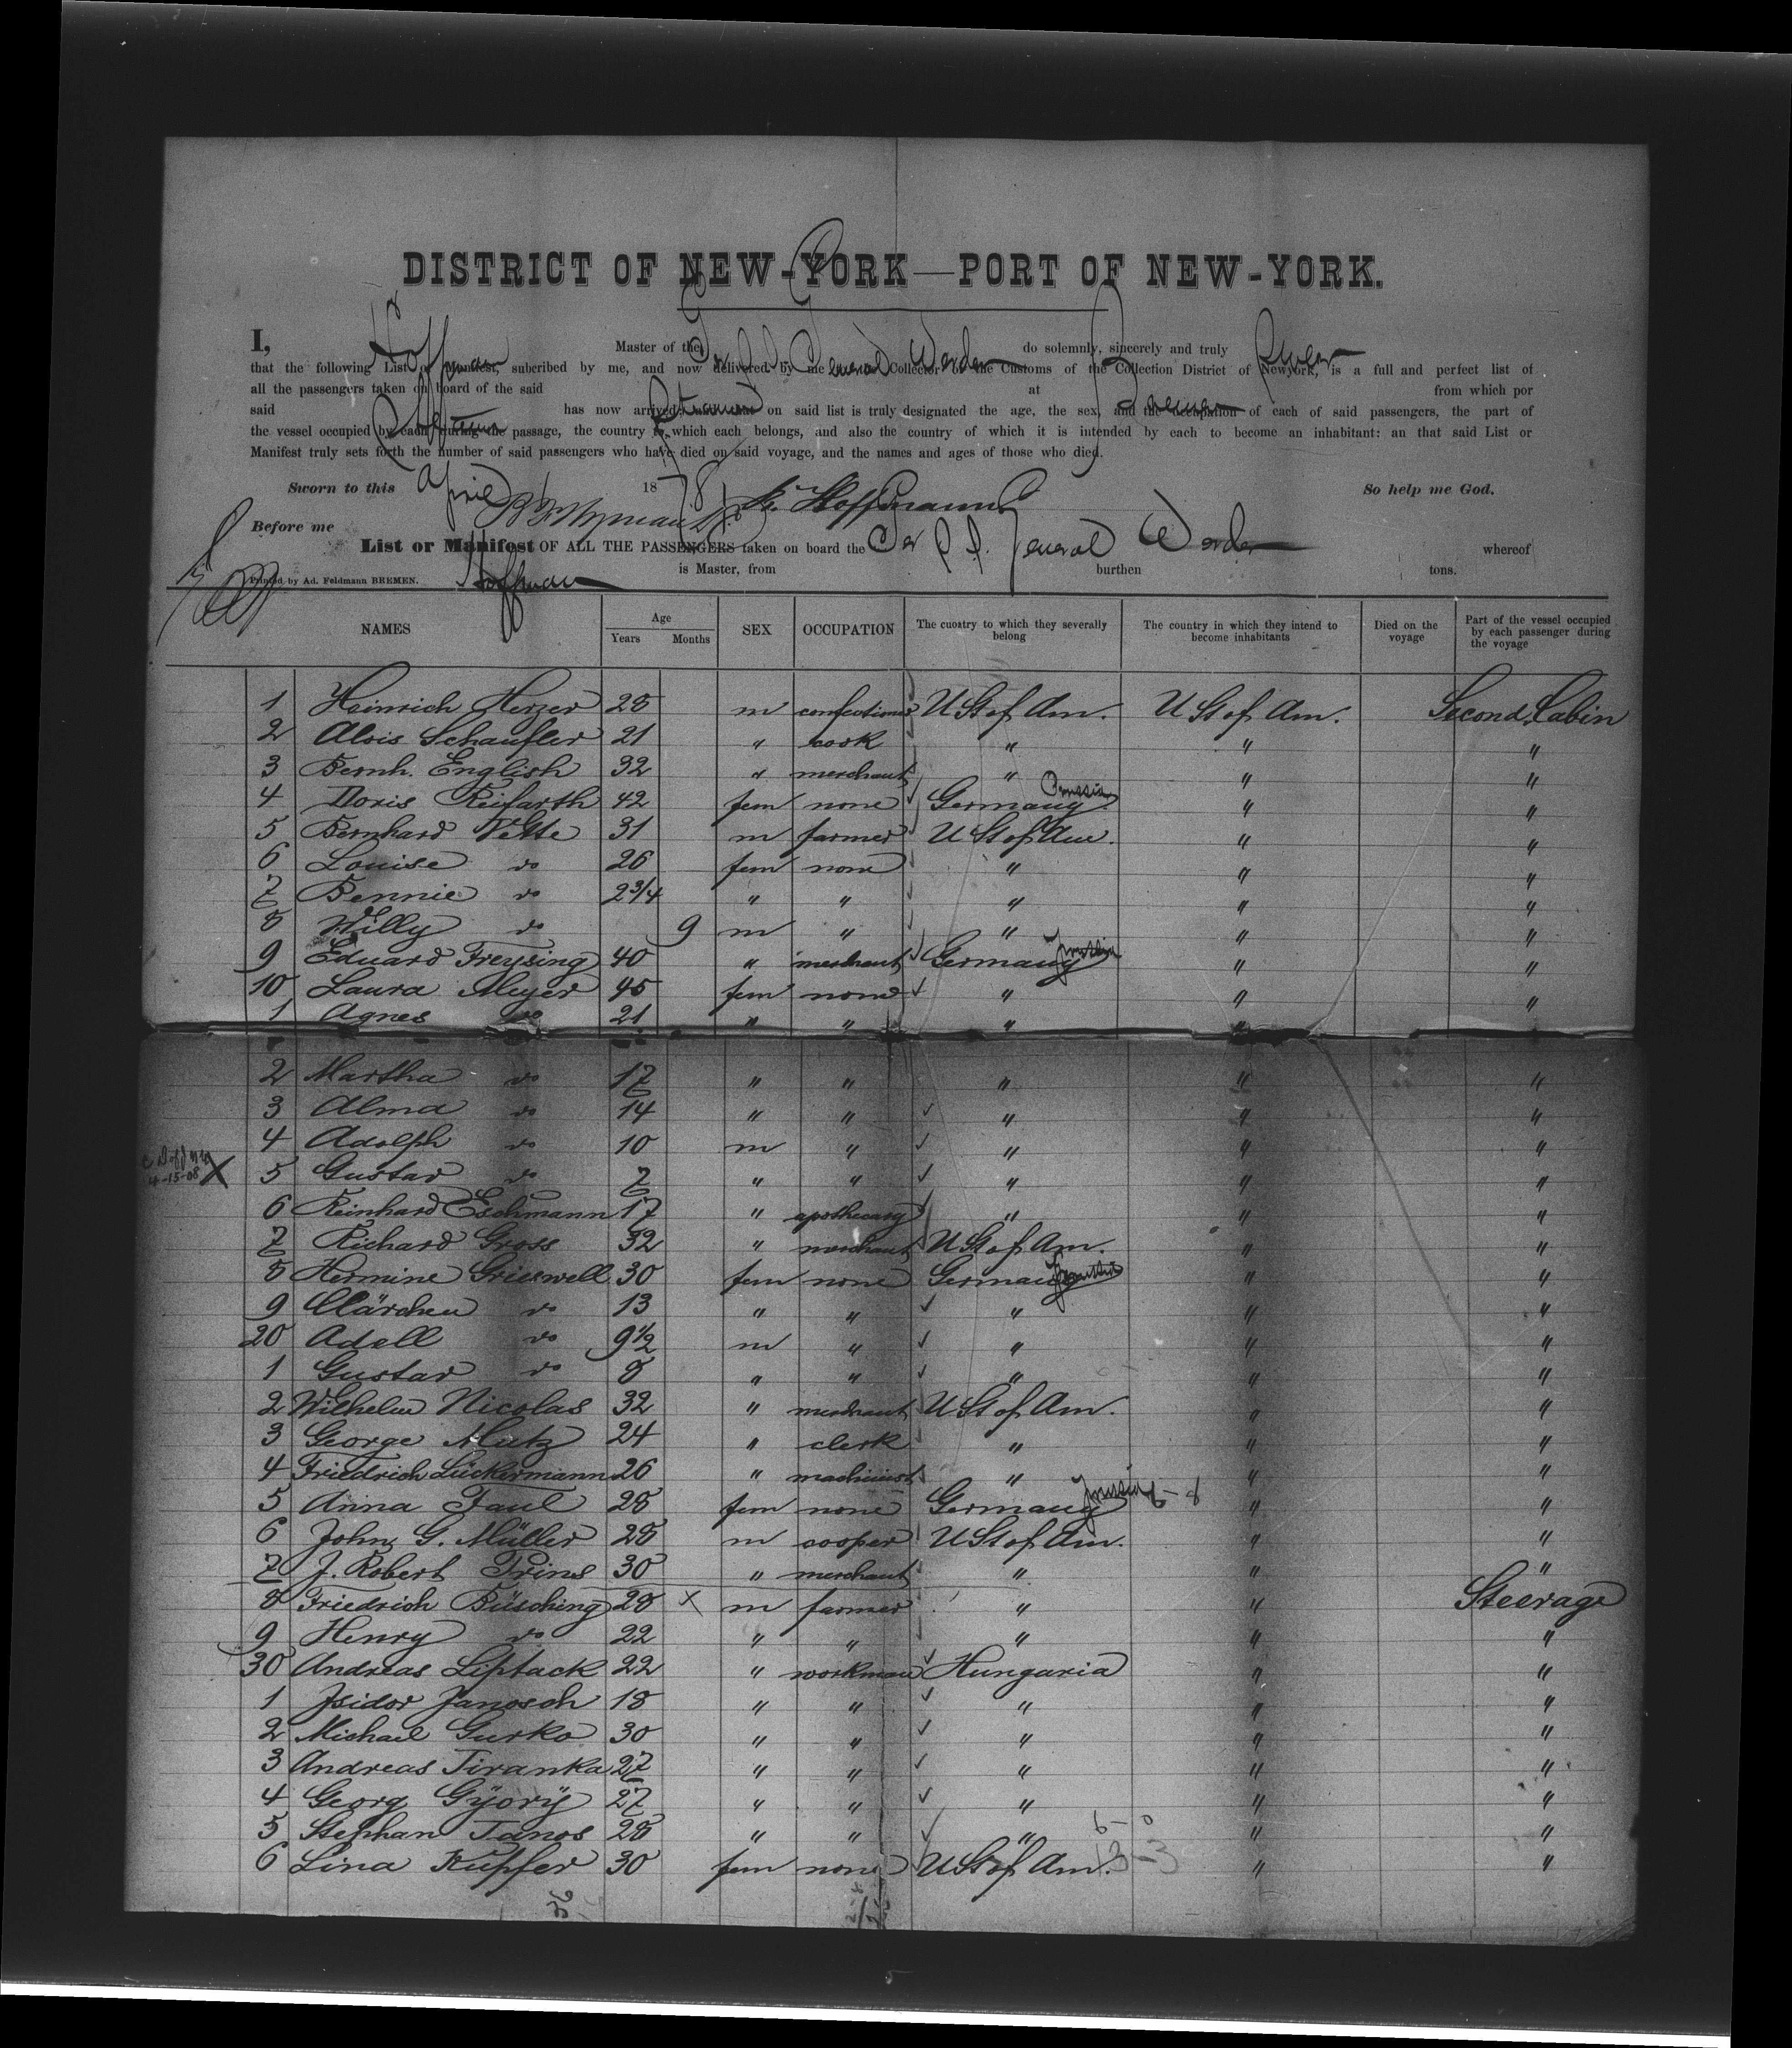 DISTRICT OF NEW-YORK—PORT OF NEW-YORK.
I, Hoffman Master of the General Werder do solemnly, sincerely and truly swear
that the following List or Manifest, subcribed by me, and now delivered by me to the Collector of the Customs of the Collection District of Newyork, is a full and perfect list of
all the passengers taken on board of the said at Bremen from which por
said has now arrived, and that on said list is truly designated the age, the sex, and the occupation of each of said passengers, the part of
the vessel occupied by each during the passage, the country to which each belongs, and also the country of which it is intended by each to become an inhabitant: an that said List or
Manifest truly sets forth the number of said passengers who have died on said voyage, and the names and ages of those who died.
Sworn to this April 1878 So help me God.
Hoffmann
Before me
List or Manifest OF ALL THE PASSENGERS taken on board the Ger General Werder whereof
Printed by Ad. Feldmann BREMEN. Hoffman is Master, from burthen tons.
NAMES Age Years Months SEX OCCUPATION The cuoatry to which they severally belong The country in which they intend to become inhabitants Died on the voyage Part of the vessel occupied by each passenger during the voyage
1 Heinrich Herzer 28 m confectioner U St of Am. U St of Am. Second Cabin
2 Alois Schaufler 21 " cook " " "
3 Bernh. English 32 " merchant " " "
4 Doris Reifarth 42 fem none Germany Prussia " "
5 Bernhard Vette 31 m farmer U St of Am. " "
6 Louise do 26 fem none " " "
7 Bennie do 2 3/4 " " " " "
8 Willy do 9 m " " " "
9 Eduard Freysing 40 " merchant Germany Prussia " "
10 Laura Meyer 45 fem none " " "
1 Agnes do 21 " " " " "
2 Martha do 17 " " " " "
3 Alma do 14 " " " " "
4 Adolph do 10 m " " " "
4-15-08 X 5 Gustav do 7 " " " " "
6 Reinhard Eschmann 17 " apothecary " " "
7 Richard Gross 32 " merchant U St of Am. " "
8 Hermine Grieswell 30 fem none Germany " "
9 Clärchen do 13 " " " " "
20 Adell do 9 1/2 m " " " "
1 Gustav do 8 " " " " "
2 Wilhelm Nicolas 32 " merchant U St of Am. " "
3 George Matz 24 " clerk " " "
4 Friedrich Lückermann 26 " machinist " " "
5 Anna Faul 28 fem none Germany Prussia " "
6 John G. Müller 28 m cooper U St of Am. " "
7 J. Robert Prins 30 " merchant " " "
8 Friedrich Büsching 28 x m farmer " " Steerage
9 Henry do 22 " " " " "
30 Andreas Liptack 22 " workman Hungaria " "
1 Isidor Janosch 18 " " " " "
2 Michael Gurko 30 " " " " "
3 Andreas Tiranka 27 " " " " "
4 Georg Györÿ 27 " " " " "
5 Stephan Janos 28 " " " " "
6 Lina Kupfer 30 fem none U St of Am. " "